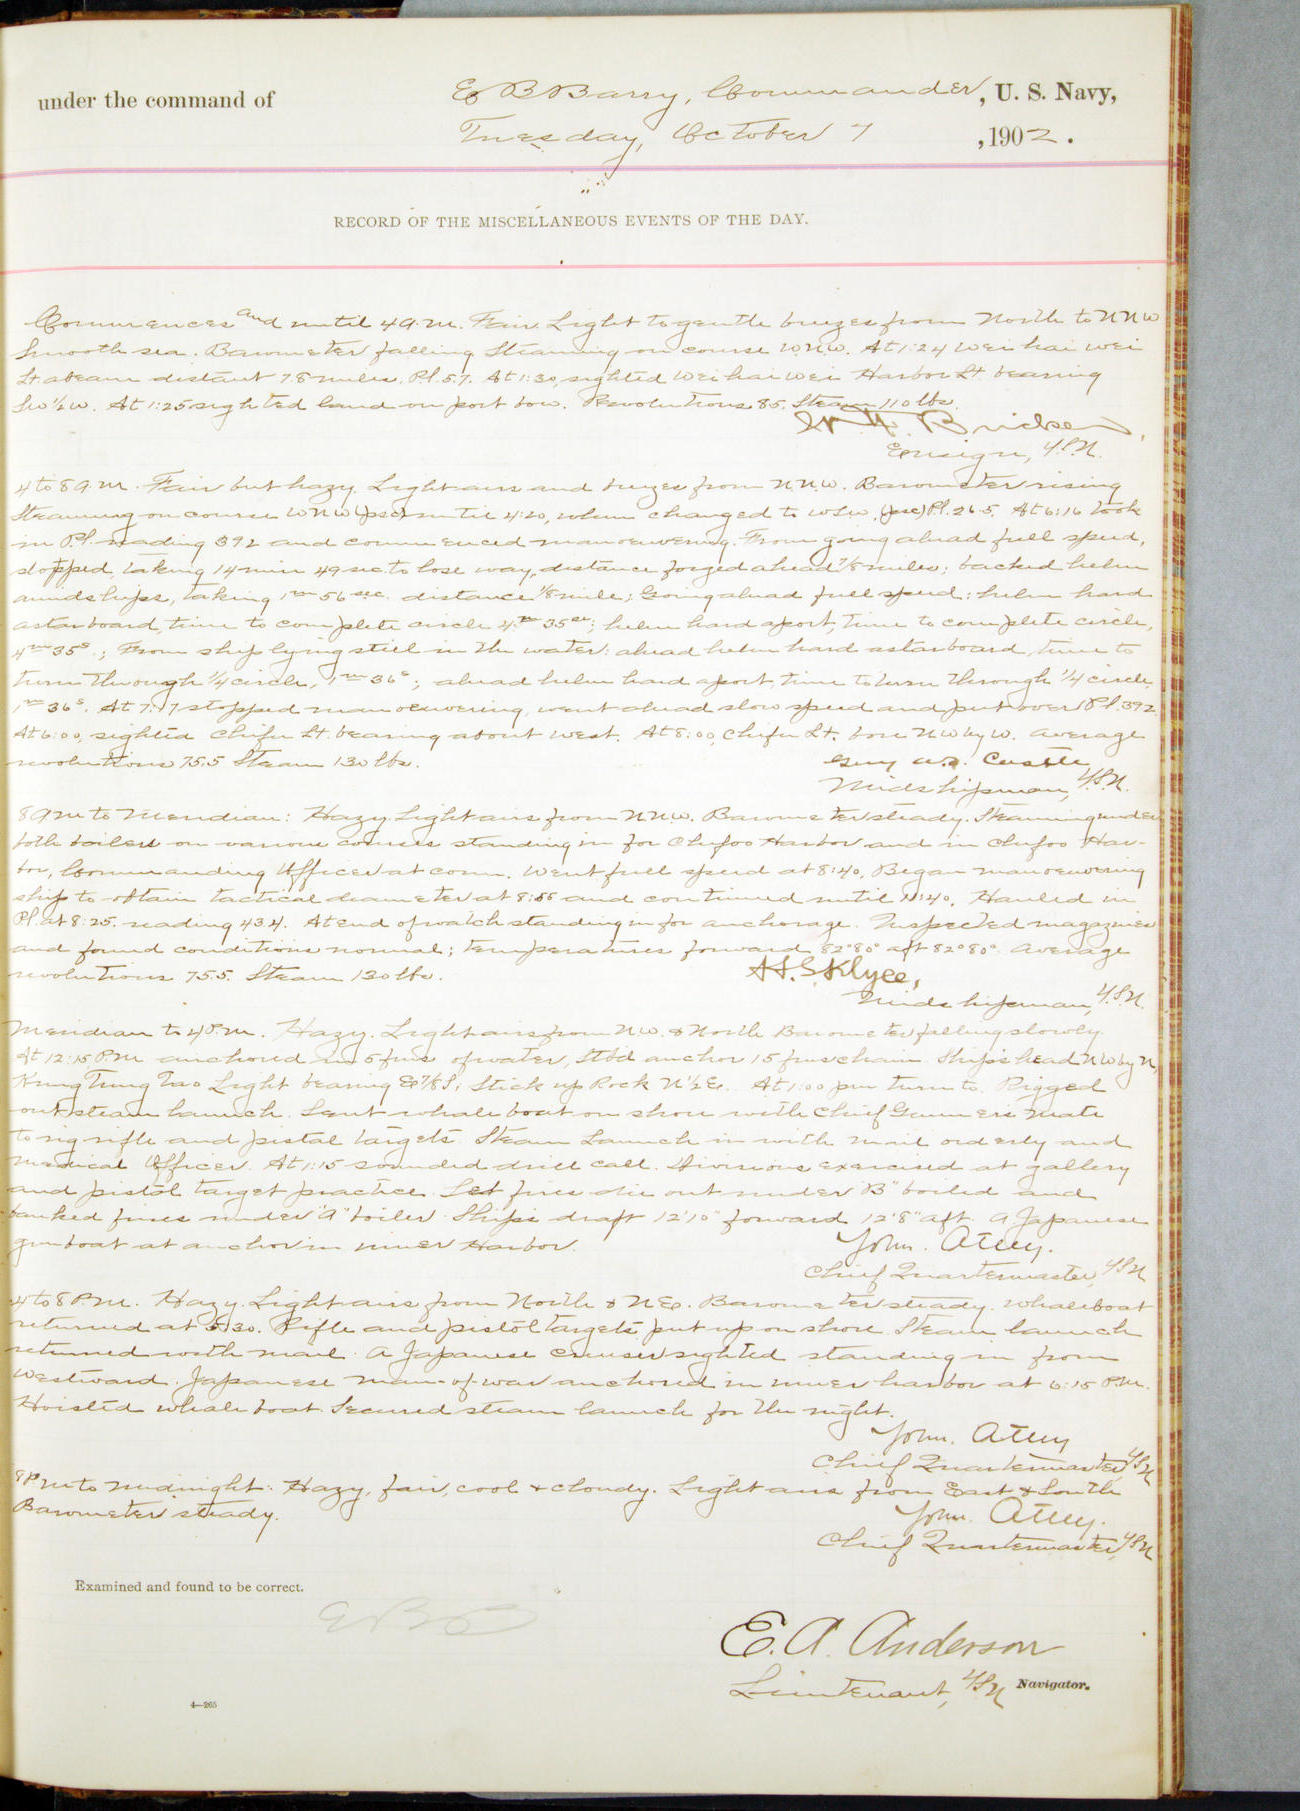 under the command of E B Barry, Commander, U. S. Navy,
Tuesday, October 7, 1902.
RECORD OF THE MISCELLANEOUS EVENTS OF THE DAY.
Commences and until 4 a.m. Fair. Light to gentle breezes from North to NNW
Smooth sea. Barometer falling. Steaming on course WNW. At 1:24 Wei hai wei
Lt abeam distant 7.8 miles. P.l. 5.7. At 1:30, sighted Wei hai wei Harbor Lt. bearing
SW ½ W. At 1:25 sighted land on port bow. Revolutions 85. Steam 110 lbs.
Ensign, U.S.N.
4 to 8 a.m. Fair but hazy. Light airs and breezes from N.N.W. Barometer rising
Steaming on course WNW (psc) until 4:20, when changed to WSW. (psc) P.l. 26.5. At 6:16 took
in P.l. reading 392 and commenced manoeuvering. From going ahead full speed,
stopped, taking 14 min 49 sec. to lose way, distance forged ahead 7/8 miles; backed helm
amidships, taking 1m 56 sec. distance 1/8 mile; Going ahead full speed: helm hard
astarboard, time to complete circle 4m 35sec; helm hard aport, time to complete circle,
4m 35s.; From ship lying still in the water: ahead helm hard astarboard, time to
turn through ¼ circle, 1m 36s; ahead helm hard aport, time to turn through ¼ circle,
1m 36s. At 7:17 stopped manoeuvering, went ahead slow speed and put over P.l. 392.
At 6:00, sighted Chifu Lt. bearing about West. At 8:00, Chifu Lt. bore NW by W. Average
revolutions 75.5 Steam 130 lbs.
Guy W.S. Castle
Midshipman, U.S.N.
8 AM to Meridian: Hazy. Light airs from N.N.W. Barometer steady. Steaming under
both boilers on various courses standing in for Chefoo Harbor and in Chefoo Har-
bor, Commanding Officer at conn. Went full speed at 8:40, Began manoeuvering
ship to obtain tactical diameter at 8:55 and continued until 11:40. Hauled in
P.l. at 8:25. reading 43.4. At end of watch standing in for anchorage. Inspected magazines
and found conditions normal; temperatures forward 82° 80° aft 82° 80°. Average
revolutions 75.5. Steam 130 lbs.
H.S. Klyce,
Midshipman, U.S.N.
Meridian to 4 P.m. Hazy. Light airs from NW. & North Barometer falling slowly.
At 12:15 PM anchored in 5 fms of water, Stb'd anchor 15 fms chain. Ship's head NW by N,
Kung Tung Tao Light bearing E 7/8 S; Stick up Rock N ½ E. At 1:00 pm turn to. Rigged
out steam launch. Sent whale boat on shore with Chief Gunners Mate
to rig rifle and pistol targets. Steam Launch in with mail orderly and
Medical Officer. At 1:15 sounded drill call. Divisions exercised at gallery
and pistol target practice. Let fires die out under "B" boiler and
banked fires under "A" boiler. Ship's draft 12' 10" forward 12' 8" aft. A Japanese
gunboat at anchor in inner Harbor.
John. Atley.
Chief Quartermaster, U.S.N.
4 to 8 P.M. Hazy. Light airs from North & N.E. Barometer steady. Whaleboat
returned at 5:30. Rifle and pistol targets put up on shore. Steam launch
returned with mail. A Japanese cruiser sighted standing in from
Westward. Japanese man-of-war anchored in inner harbor at 6:15 P.M.
Hoisted whale boat. Secured steam launch for the night.
John. Atley
Chief Quartermaster, U.S.N.
8 PM to midnight: Hazy, fair, cool & cloudy. Light airs from East & South
Barometer steady.
John. Atley.
Chief Quartermaster, U.S.N.
Examined and found to be correct.
EBB
E. A. Anderson
Lieutenant, U.S.N. Navigator.
4—265